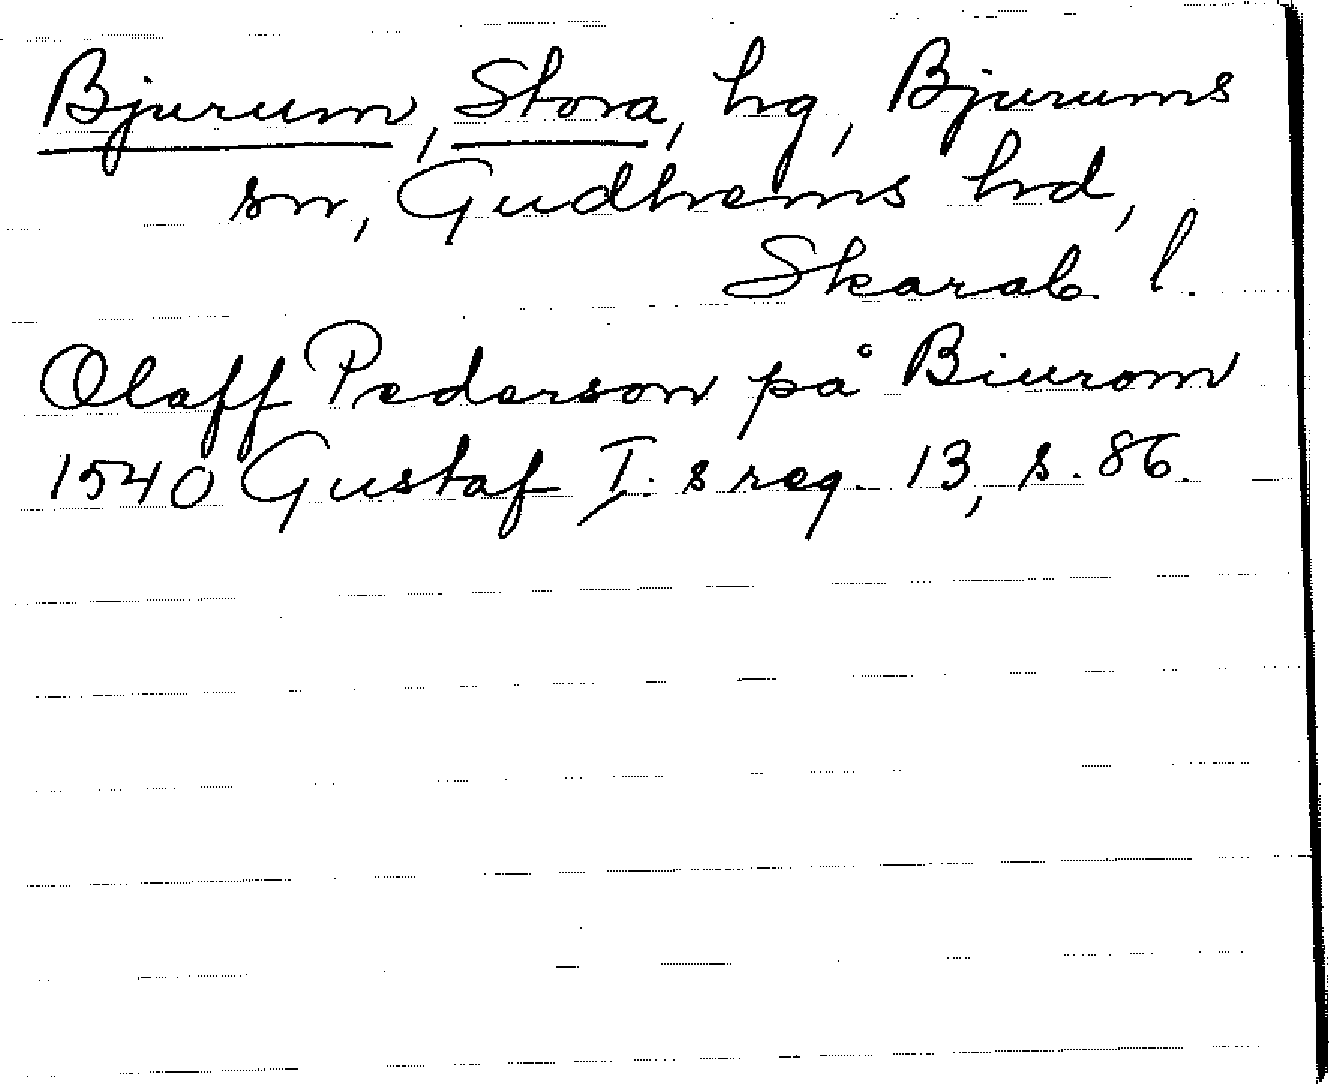 Bjurum, Stora, hg, Bjurums
sn, Gudhems hd,
Skarab. l.
Olaff Pederson på Biurom
1540 Gustaf I. s reg. 13, s. 86.